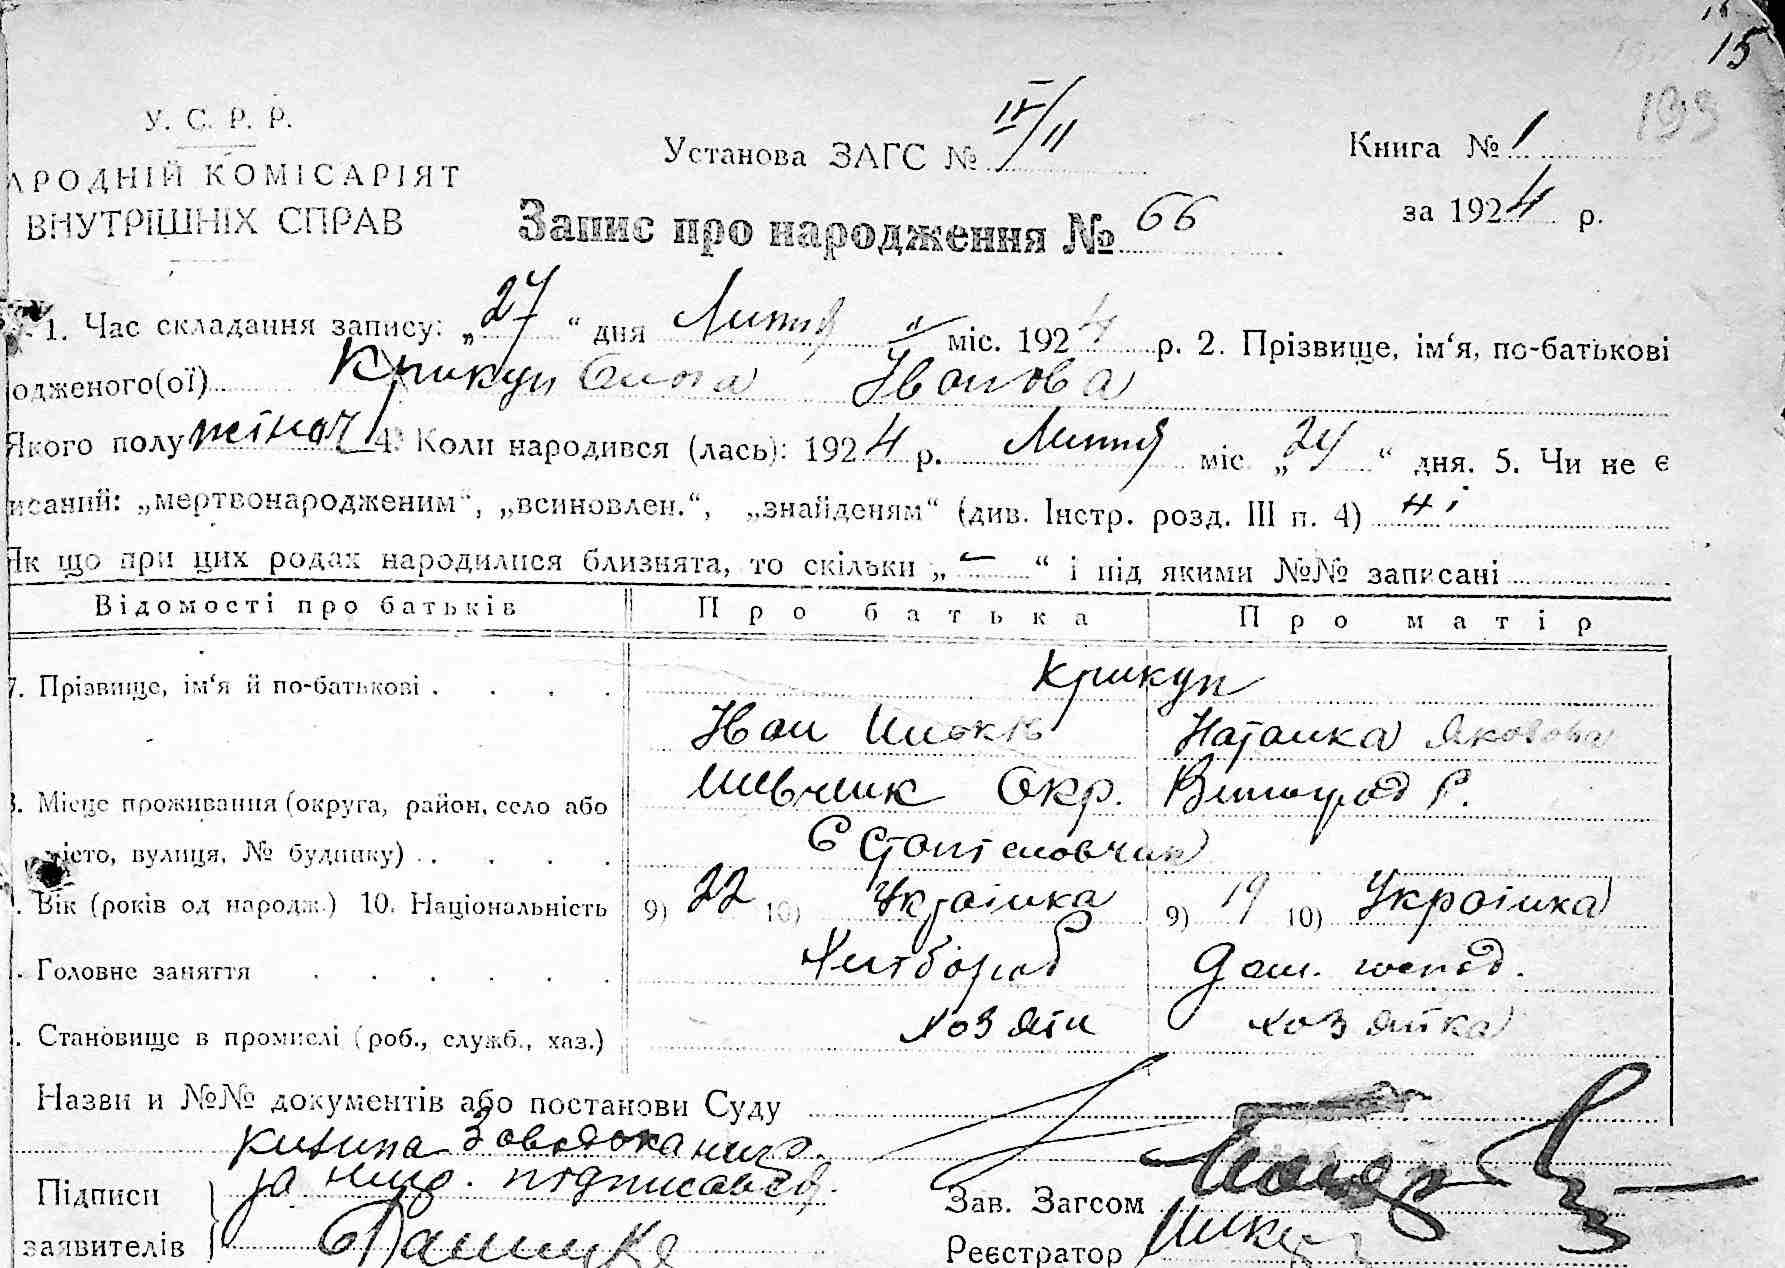 15
199
У. С. Р. Р.
АРОДНІЙ КОМІСАРІЯТ
ВНУТРІШНІХ СПРАВ
Установа ЗАГС № IV/11
Книга № 1
за 1924 р.
Запис про народження № 66
1. Час складання запису: „27“ дня Липня міс. 1924 р. 2. Прізвище, ім‘я, по-батькові
одженого(ої) Крикун Олена Іванова
Якого полу жіноч 4. Коли народився (лась): 1924 р. Липня міс. „24“ дня. 5. Чи не є
исаний: „мертвонародженим“, „всиновлен.“, „знайденям“ (див. Інстр. розд. III п. 4) ні
Як що при цих родах народилися близнята, то скільки „-“ і під якими №№ записані
Відомості про батьків Про батька Про матір
7. Прізвище, ім‘я й по-батькові Крикун
Іван Наталка Яковова
Місце проживання (округа, район, село або Шевченк Окр. Виноград Р.
місто, вулиця, № будинку) С
Вік (років од народж.) 10. Національність 9) 22 10) Українка 9) 19 10) Українка
Головне заняття Хлібороб Дом.
Становище в промислі (роб., служб., хаз.) хозяін хозяйка
Назви и №№ документів або постанови Суду
за підписався
Підписи
заявителів
Зав. Загсом
Реєстратор